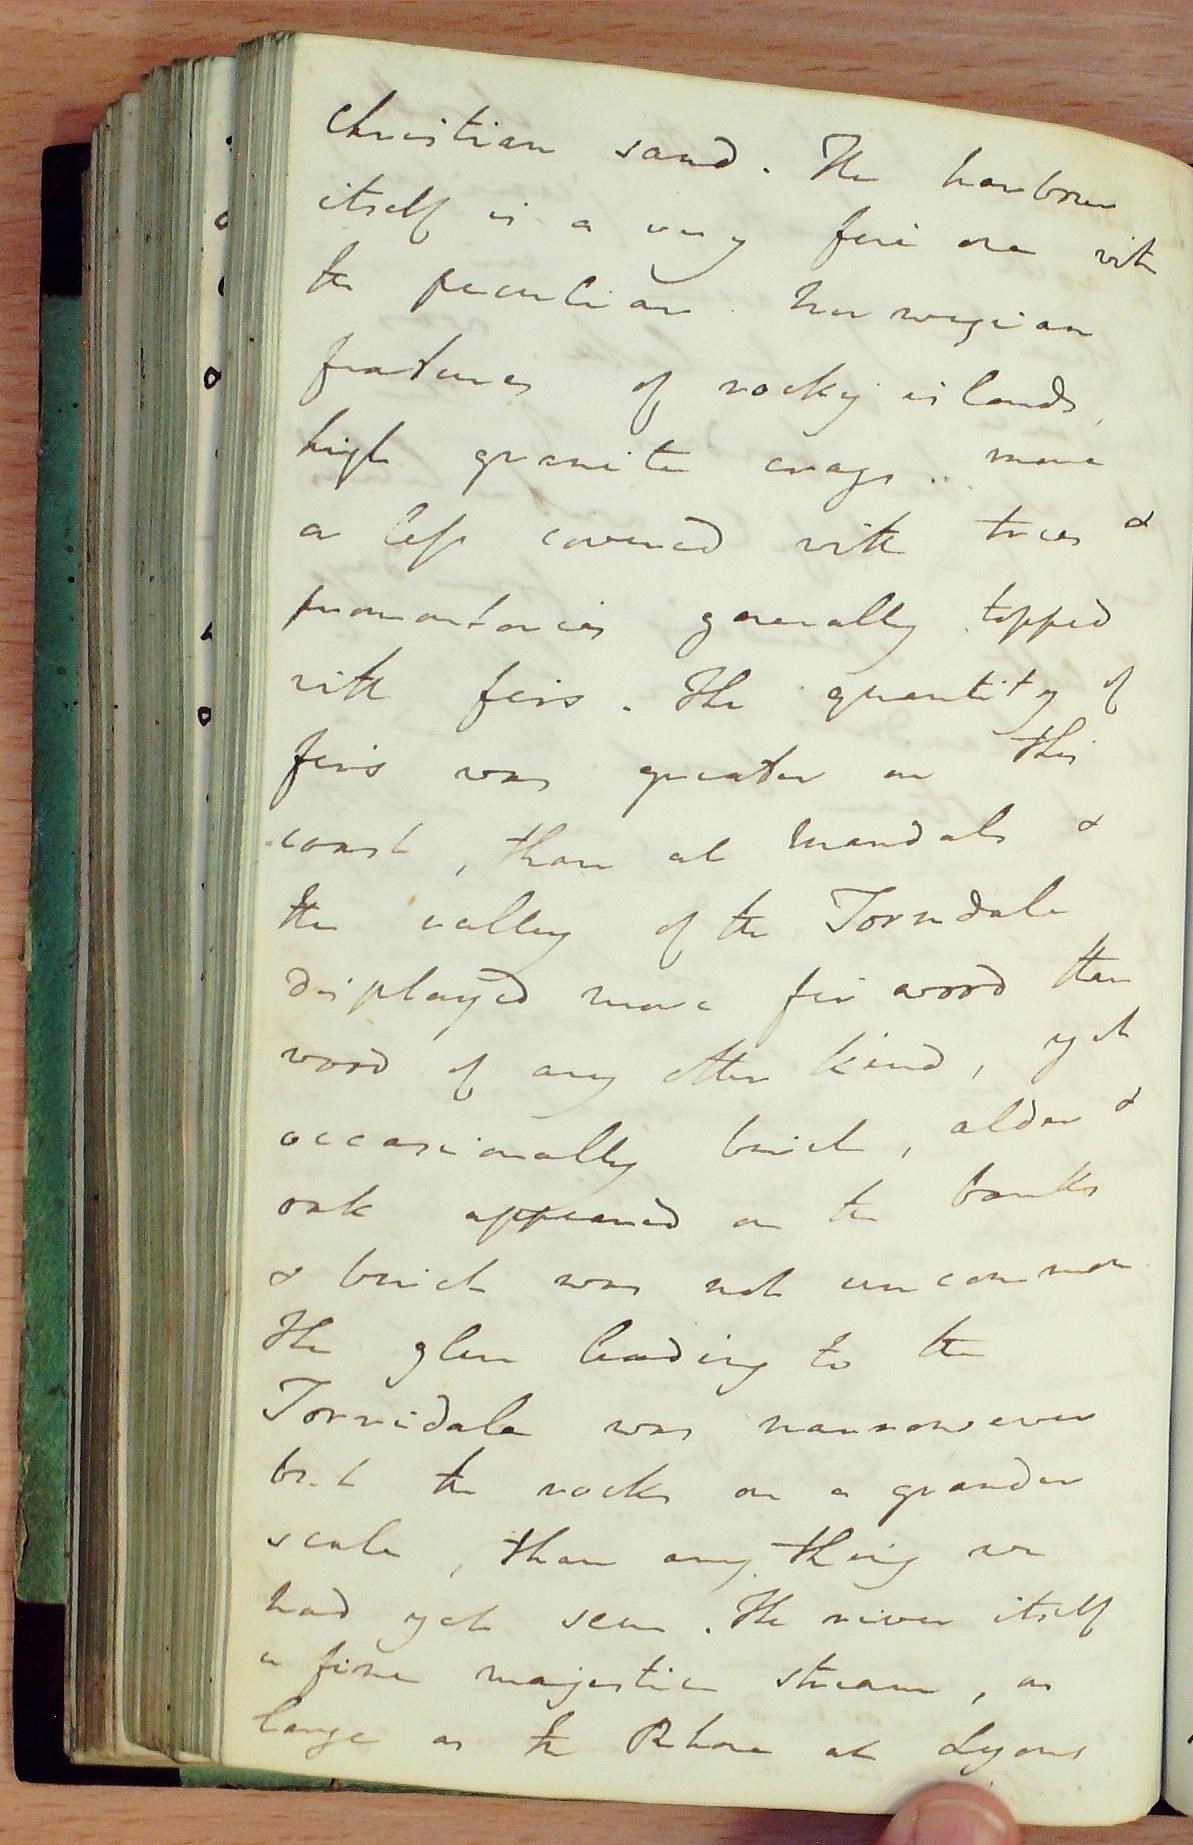 Christian sand. The harbour
itself is a very fine one with
the peculiar Norwegian
features of rocky islands,
high granite crags.. more
or less covered with trees &
promontories generally topped
with firs. The quantity of
firs was greater on this
coast, than at Mandals &
the valley of the Torridale
displayed more fir wood than
wood of any other kind, yet
occasionally birch, alder &
oak appeared on the banks
& birch was not uncommon
The glen leading to the
Torridale was narrow even
but the rocks on a grander
scale, than any thing we
had yet seen. The river itself
a fine majestic stream, as
large as the Rhone at Lyons